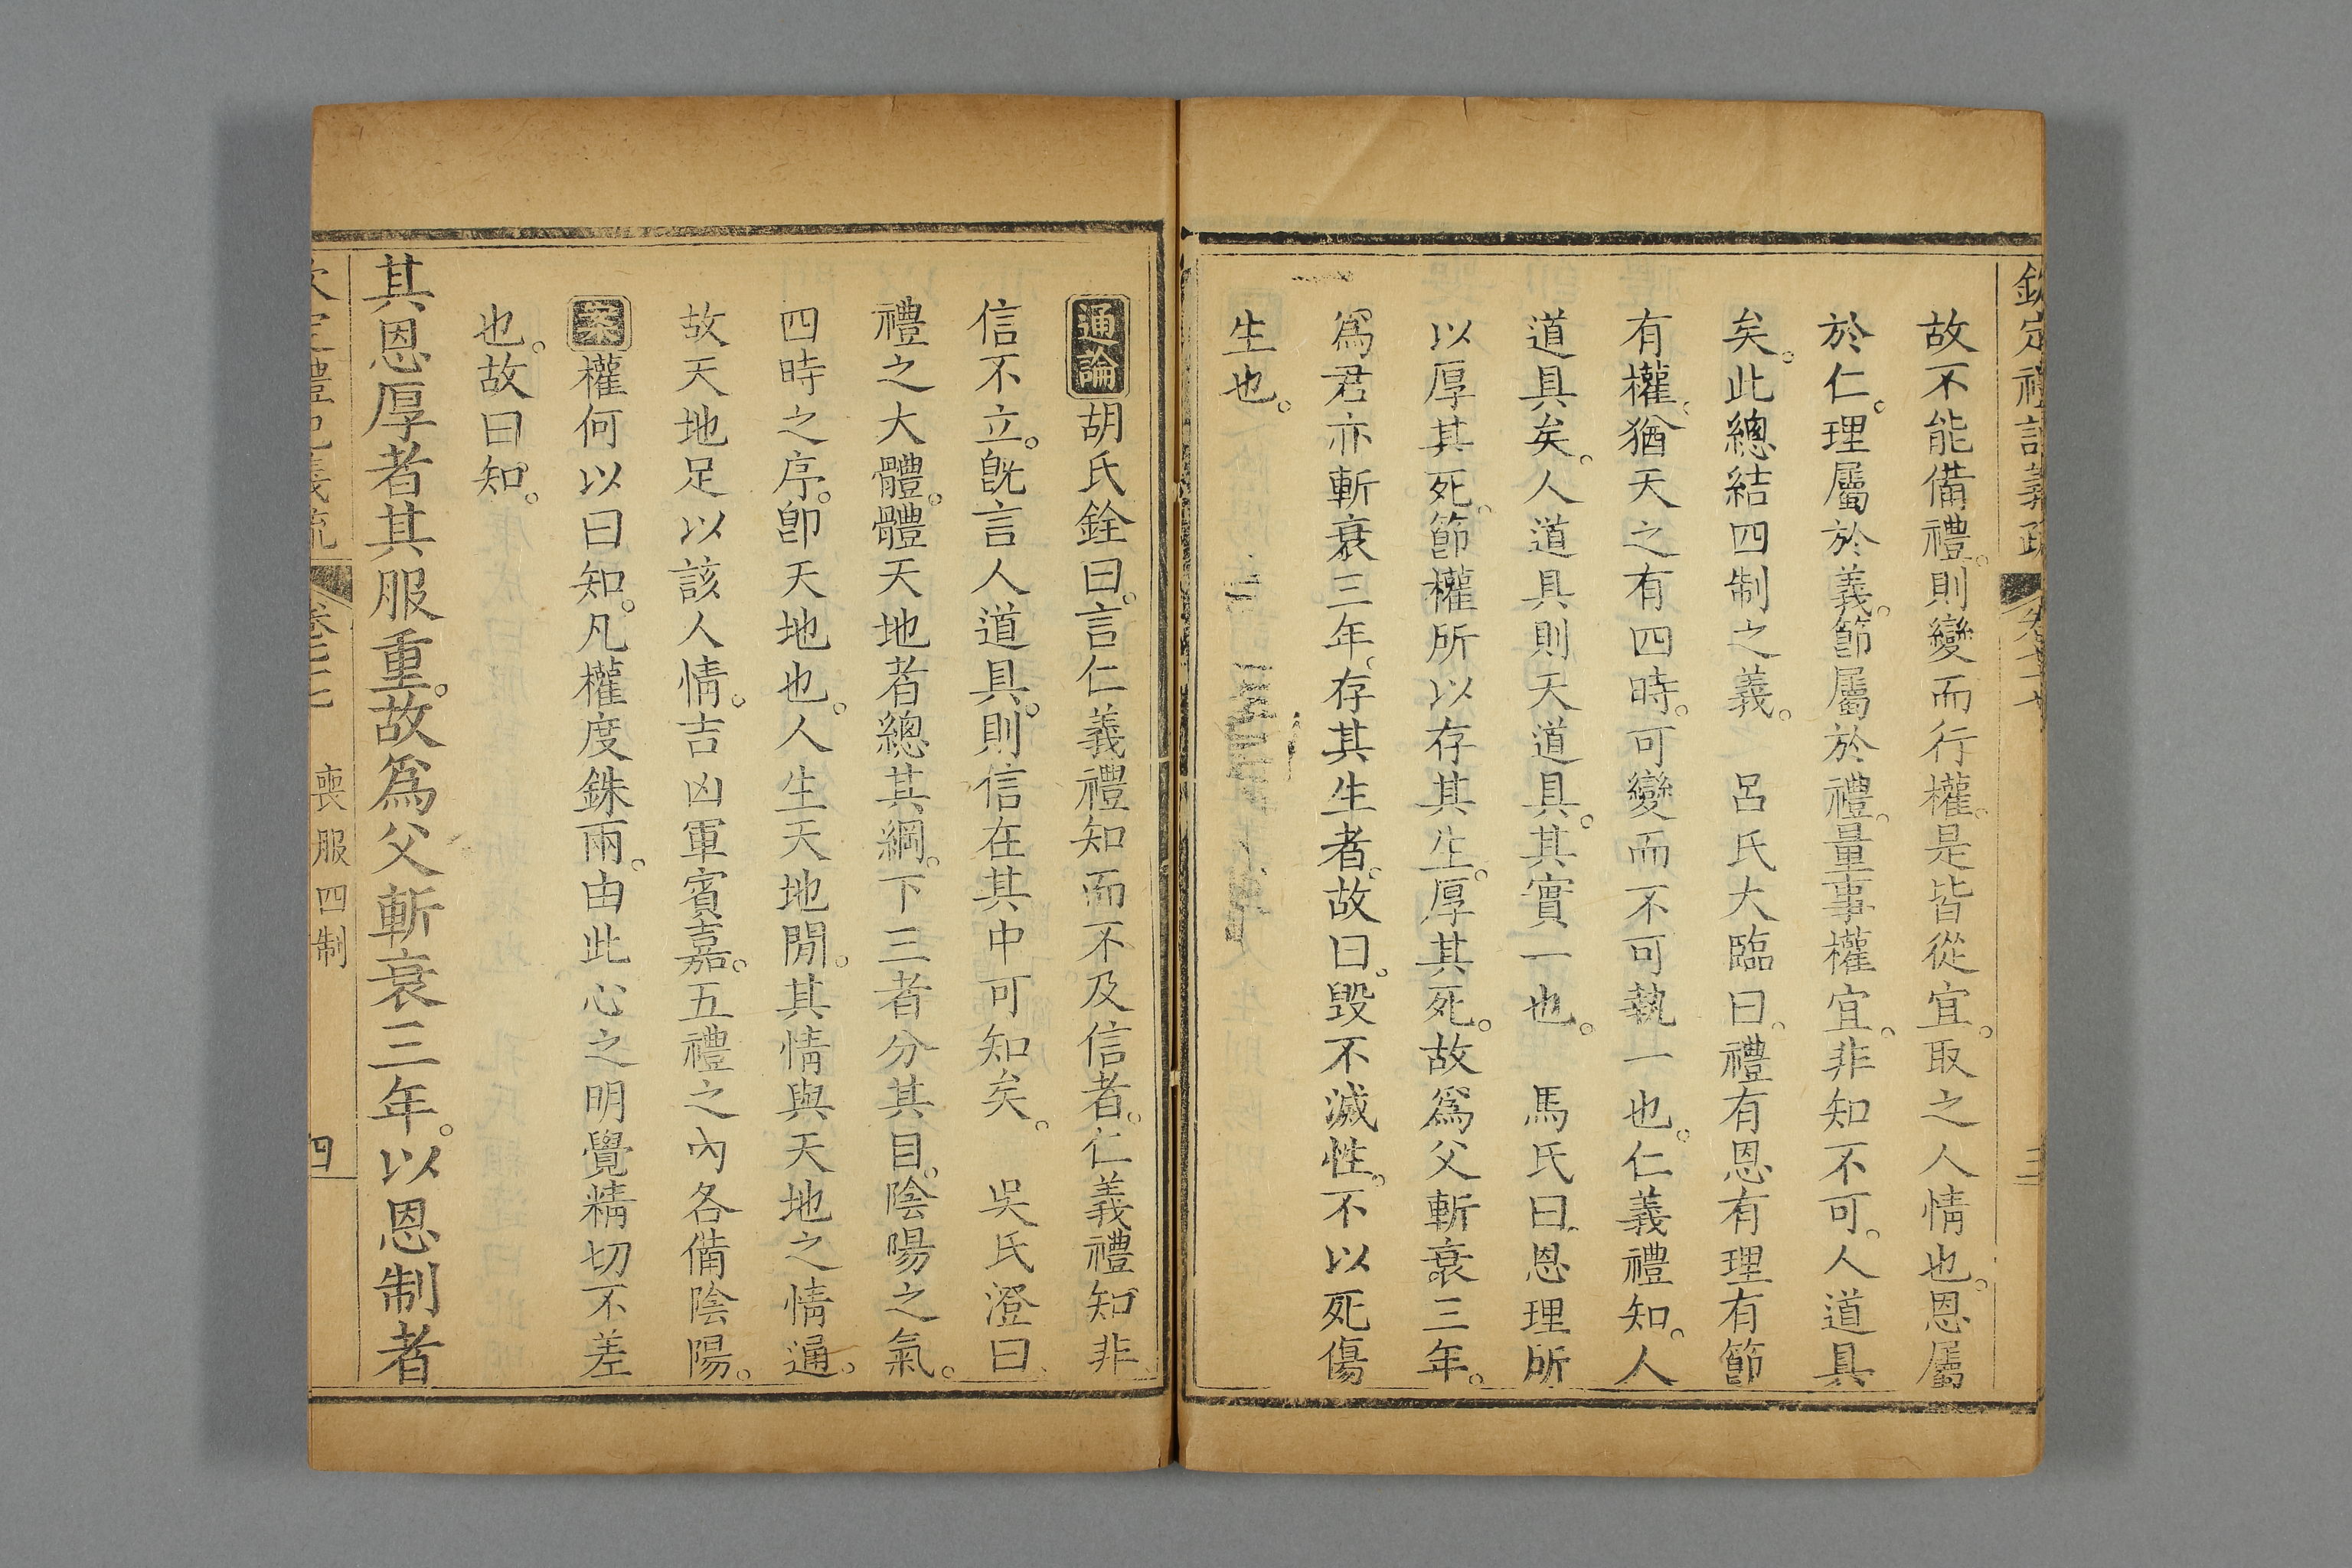 欽定禮記義疏 卷七十七 三
故不能備禮。則變而行權。是皆從宜。取之人情也。恩屬
於仁。理屬於義。節屬於禮。量事權宜。非知不可。人道具
矣。此總結四制之義。 呂氏大臨曰。禮有恩有理有節
有權。猶天之有四時。可變而不可執一也。仁義禮知。人
道具矣。人道具則天道具。其實一也。 馬氏曰。恩理所
以厚其死。節權所以存其生。厚其死。故爲父斬衰三年。
爲君亦斬衰三年。存其生者。故曰。毀不滅性。不以死傷
生也。
通論胡氏銓曰。言仁義禮知而不及信者。仁義禮知。非
信不立。旣言人道具。則信在其中可知矣。 吳氏澄曰。
禮之大體。體天地者總其綱。下三者分其目。陰陽之氣。
四時之序。卽天地也。人生天地閒。其情與天地之情通。
故天地足以該人情。吉凶軍賓嘉。五禮之內各備陰陽。
案權何以曰知。凡權度銖兩。由此心之明覺精切不差
也。故曰知。
其恩厚者其服重。故爲父斬衰三年。以恩制者
欽定禮記義疏 卷七十七 喪服四制 四